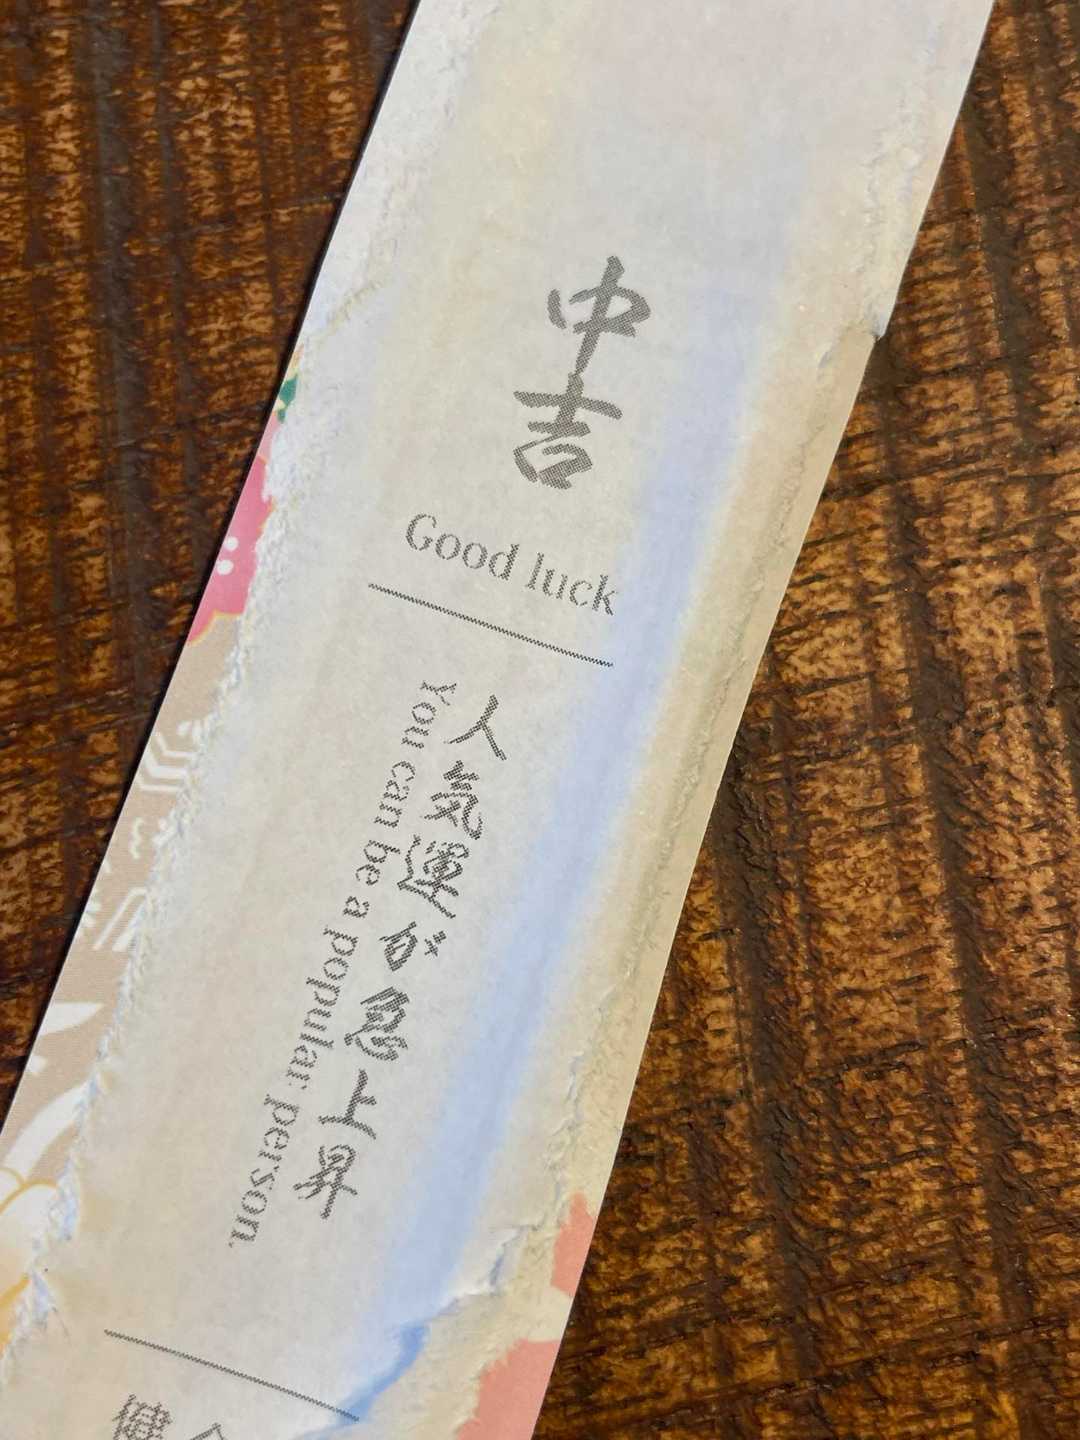 中吉
Good luck
人気運が急上昇
You can be a popular person.
健